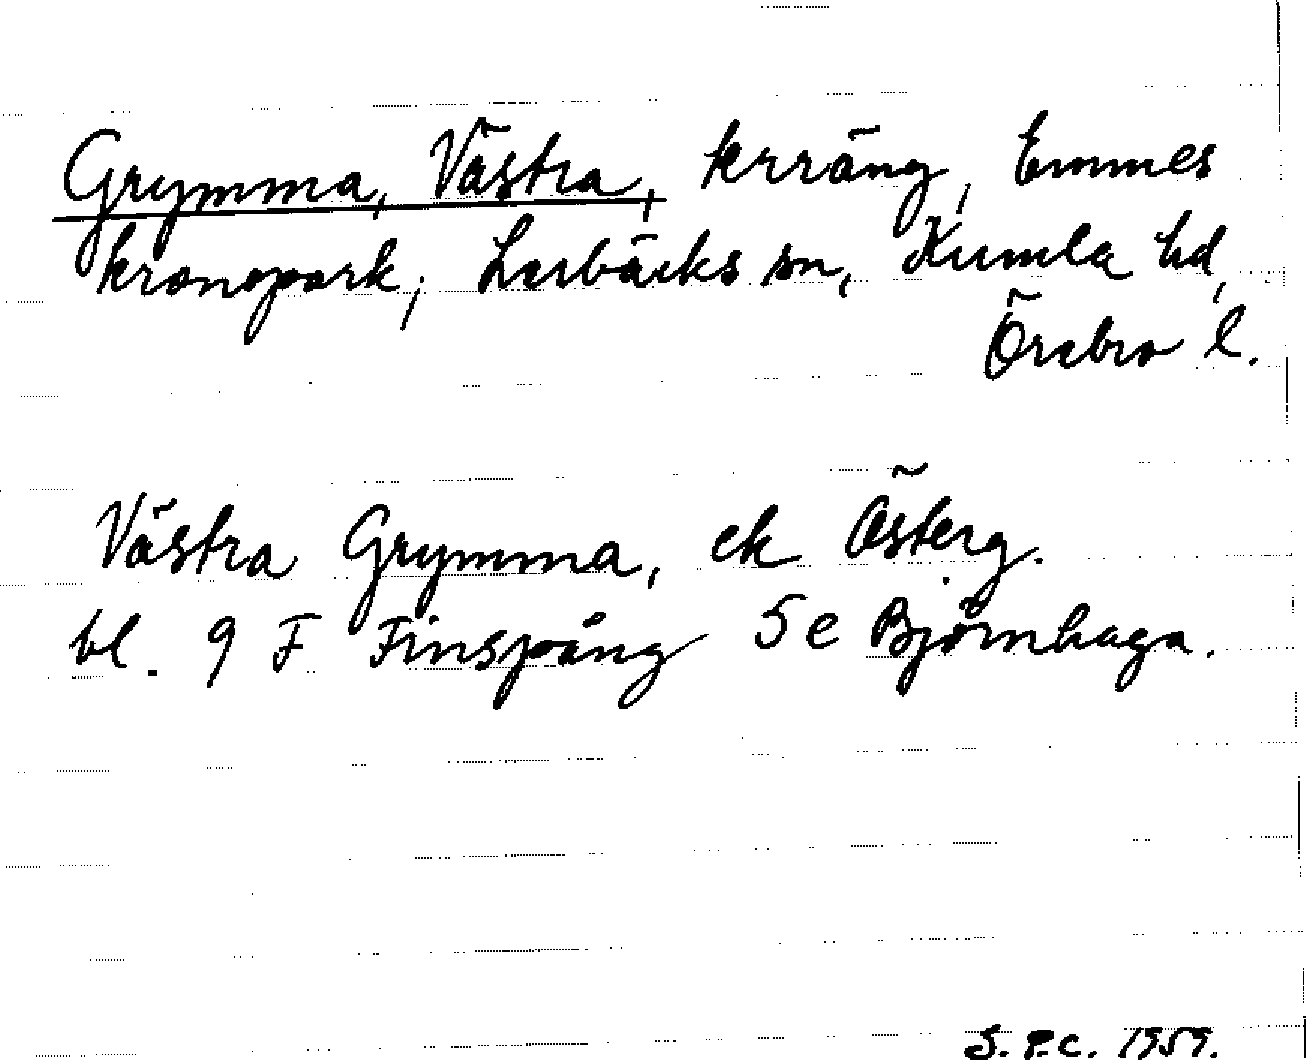 Grymma, Västra, krräng, Emmes
kronopark, Lerbäcks sn, Kumla hd,
Örebro l.
Västra Grymma, ek Österg.
bl. 9 F Finspång 5 e Björnhaga.
S. P.C. 1959.